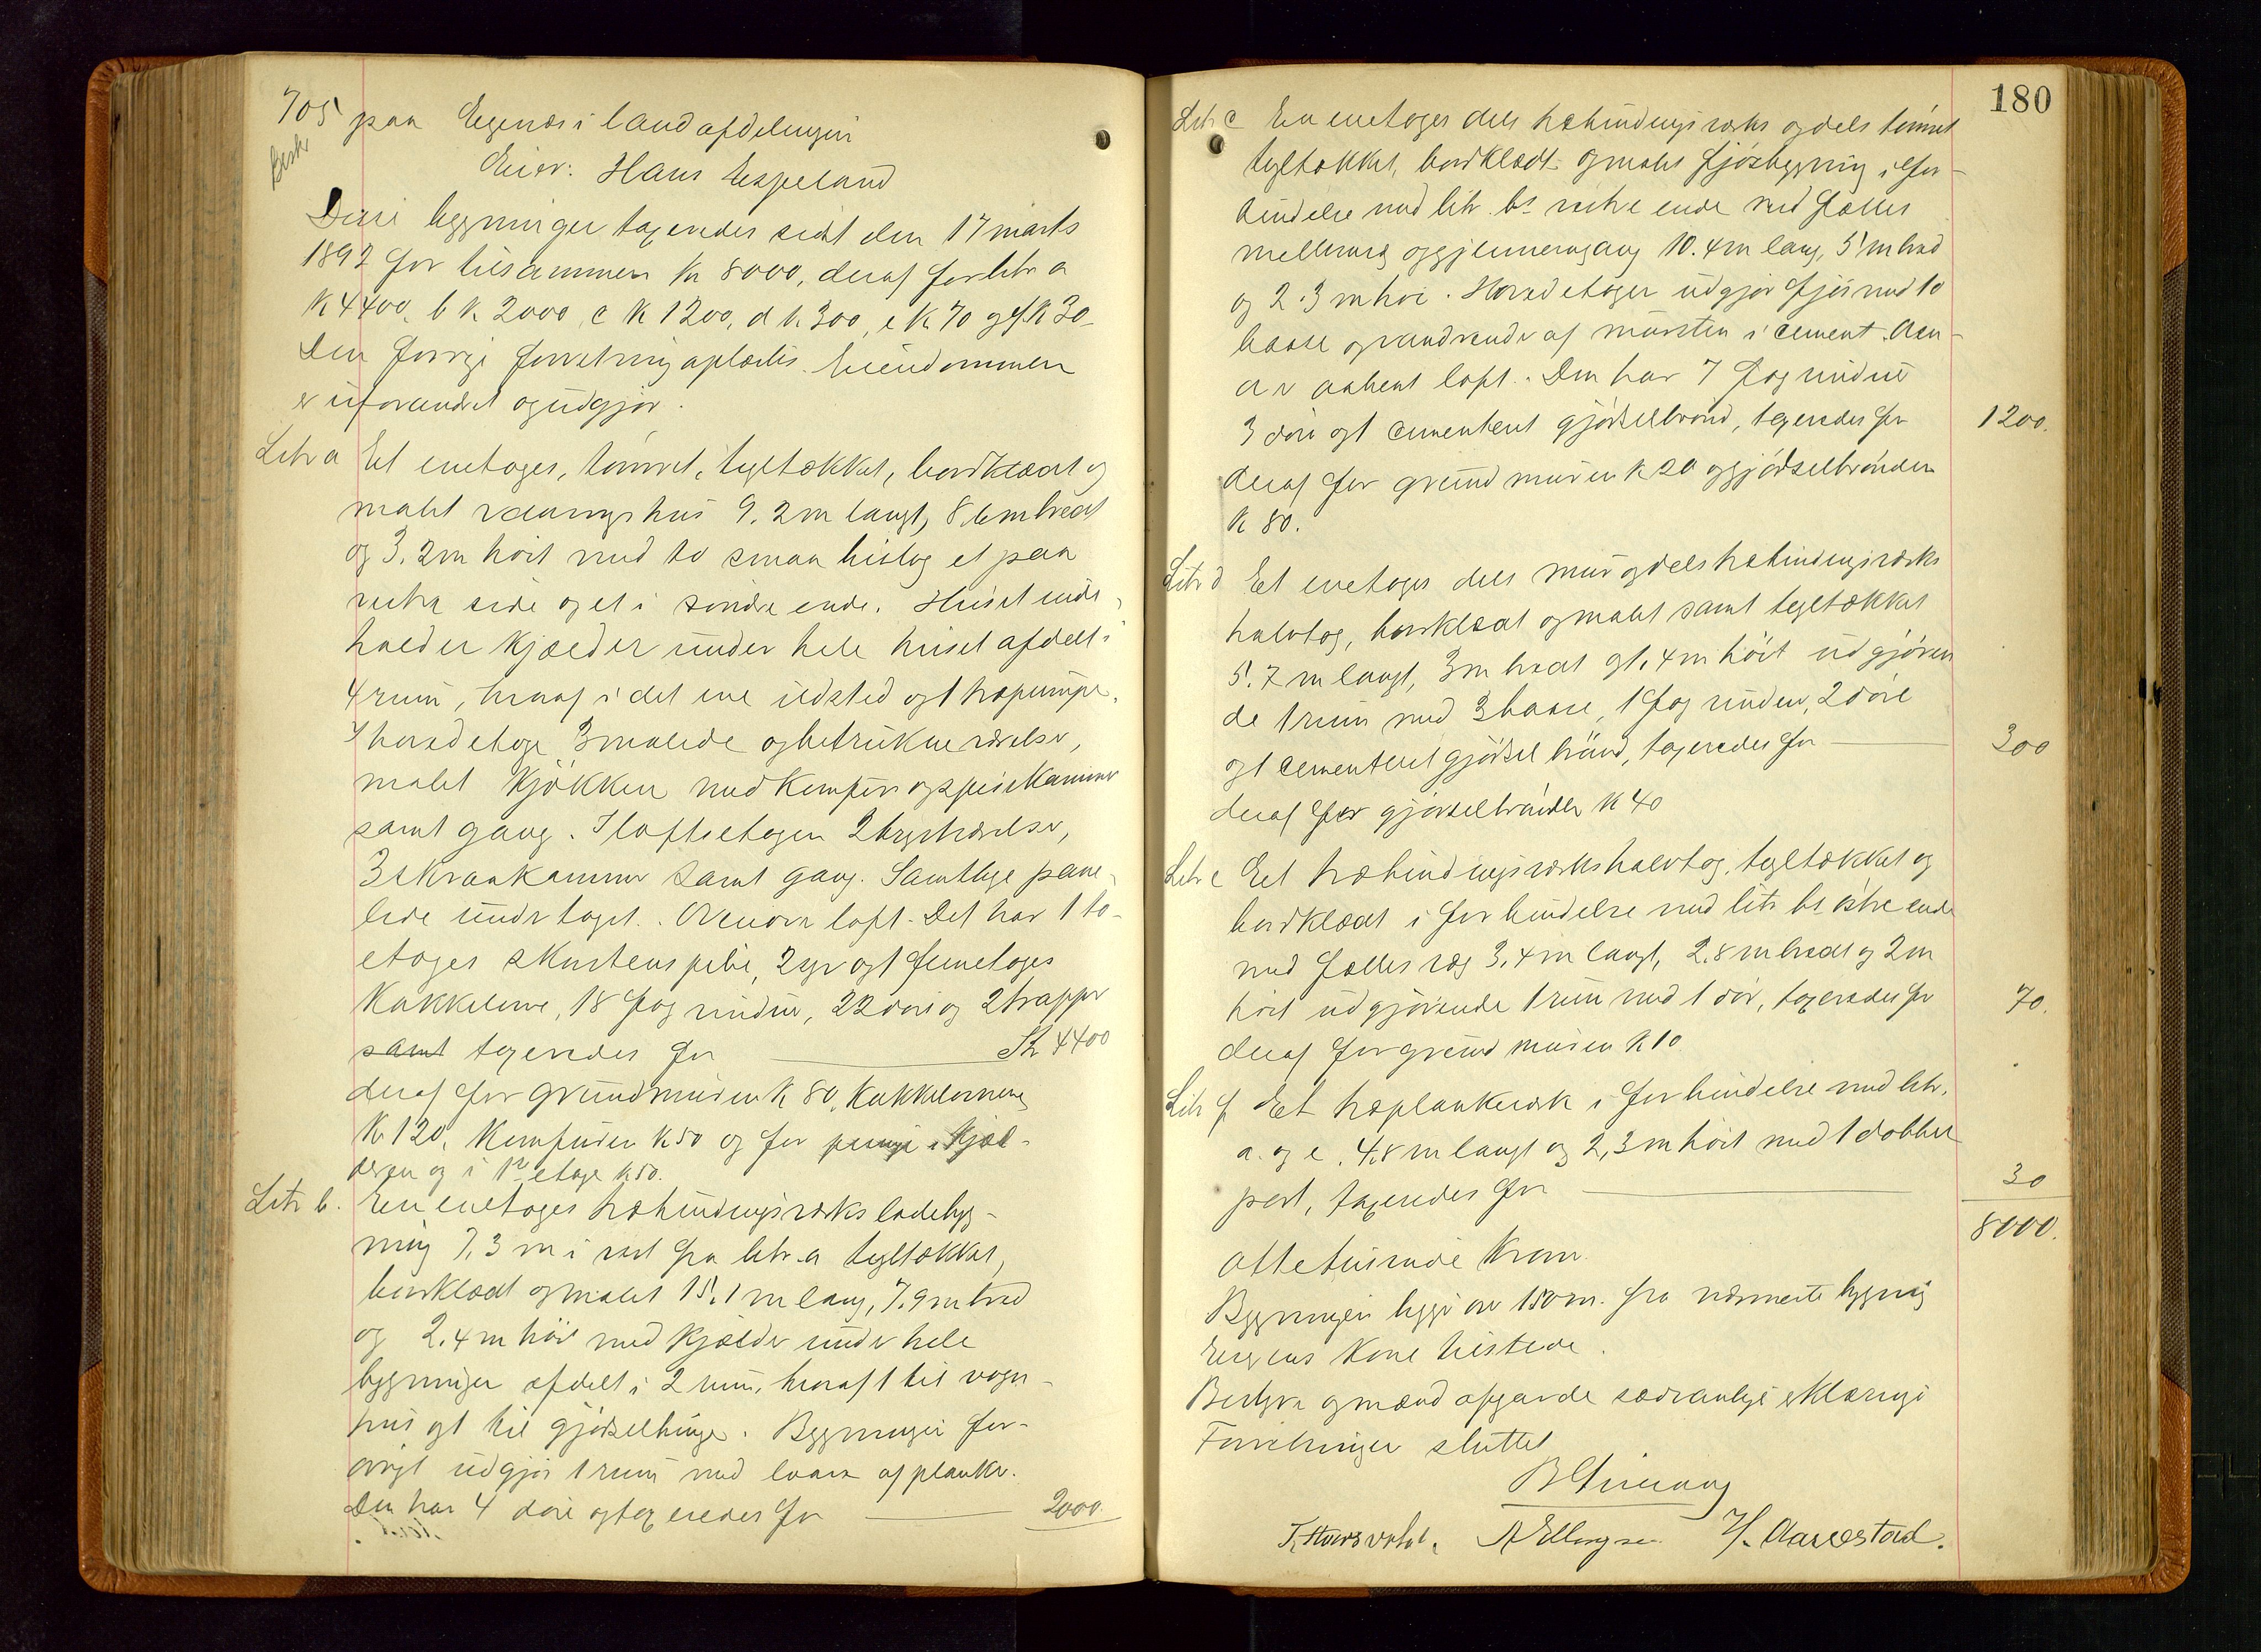 705 paa Egenæs i landafdelingen
Beskr
Eier: Hans Espeland
Disse bygninger taxeredes sidst den 17 marts
1892 for tilsammen Kr 8000, deraf for litr a
K 4400, b K 2000, c K 1200, d K 300, e K 70 og f K 30
Den forrige forretning oplæstes. Eiendommen
er uforandret og udgjør.
Litr a Et enetages, tømret, tegltækket, bordklædt og
malet vaaningshus 9.2 m langt, 8.6 m bredt
og 3.2 m høit med to smaa bislag et paa
vestre side og et i søndre ende. Huset inde-
holder kjælder under hele huset afdelt i
4 rum, hvoraf i det ene ildsted og 1 træpumpe.
I hovedetage 3 malede og betrukne værelser,
malet kjøkken med komfur og spisekammer
samt gang. I loftsetagen 2 kvistværelser,
3 skraakammer samt gang. Samtlige pane-
lede under taget. Ovenover loft. Det har 1 to-
etages skorstenspibe, 2 gr og 1 femetages
Kakkelovne, 18 fag vinduer, 22 døre og 2 trapper
samt taxeredes for Kr 4400
deraf for grundmuren K 80, Kakkelovnene
K 120, Komfuren K 50 og for pumpe i Kjæl-
deren og i 1ste etage K 50.
Litr b. En enetages træbindingsværks ladebyg-
ning 7,3 m i vest fra litr. a tegltækket,
bordklædt og malet 15.1 m lang, 7.9 m bred
og 2.4 m høi med kjælder under hele
bygningen afdelt i 2 rum, hvoraf 1 til vogn-
hus og 1 til gjødselbinge. Bygningen for-
øvrigt udgjør 1 rum med laave af planker.
Den har 4 døre og taxeredes for 2000.
180
Litr c En enetages dels træbindingsværks og dels tømret
tegltækket, bordklædt og malet fjøsbygning i for-
bindelse med litr. bs vestre ende med fælles
mellemvæg og gjennemgang 10.4 m lang, 5 m bred
og 2.3 m høi. Hovedetagen udgjør fjøs med 10
baase og vandrende af mursten i cement. Oven-
over aabent loft. Den har 7 fag vinduer
3 døre og 1 cementeret gjødselbrønd, taxeredes for 1200.
deraf for grundmuren K 20 og gjødselbrønden
K 80.
Litr d Et enetages dels mur og dels træbindingsværks
halvtag, bordklædt og malet samt tegltækket
5.7 m langt, 3 m bredt og 1.4 m høit udgjøren
de 1 rum med 3 baase, 1 fag vinduer, 2 døre
og 1 cementeret gjødselbrønd, taxeredes for 300
deraf for gjødselbrønden K 40
Litr e Et træbindingsværks halvtag, tegltækket og
bordklædt i forbindelse med litr bs østre ende
med fælles væg 3.4 m langt, 2.8 m bredt og 2 m
høit udgjørende 1 rum med 1 dør, taxeredes for 70.
deraf for grundmuren K 10
Litr f Et træplankeværk i forbindelse med litr.
a og e, 4.8 m langt og 2,3 m høit med 1 dobbelt
port, taxeredes for 30
8000.
Ottetusinde Kroner.
Bygningen ligger over 150 m. fra nærmeste bygning
Eierens Kone tilstede.
Bestyrer og mænd afgavde sædvanlige erklæringer
Forretningen sluttet
A Ellingsen H. Aarrestad.